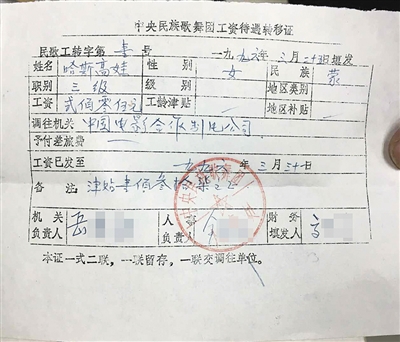 中央民族歌舞团工资待遇转移证
民歌工转字第 号 一九九 年 三月 三十日填发
姓名 哈斯高娃 性别 女 民族 蒙
职别 三级 级别 地区类别
工资 弍佰零 元 工龄津贴 地区补贴
调往机关 中国电影合作制片公司
予付差旅费
工资已发至 一九九 年 三月三十日
备注: 津贴壹佰叁拾柒元
机关负责人 岳 人事负责人 财务填发人
本证一式二联，一联留存，一联交调往单位。